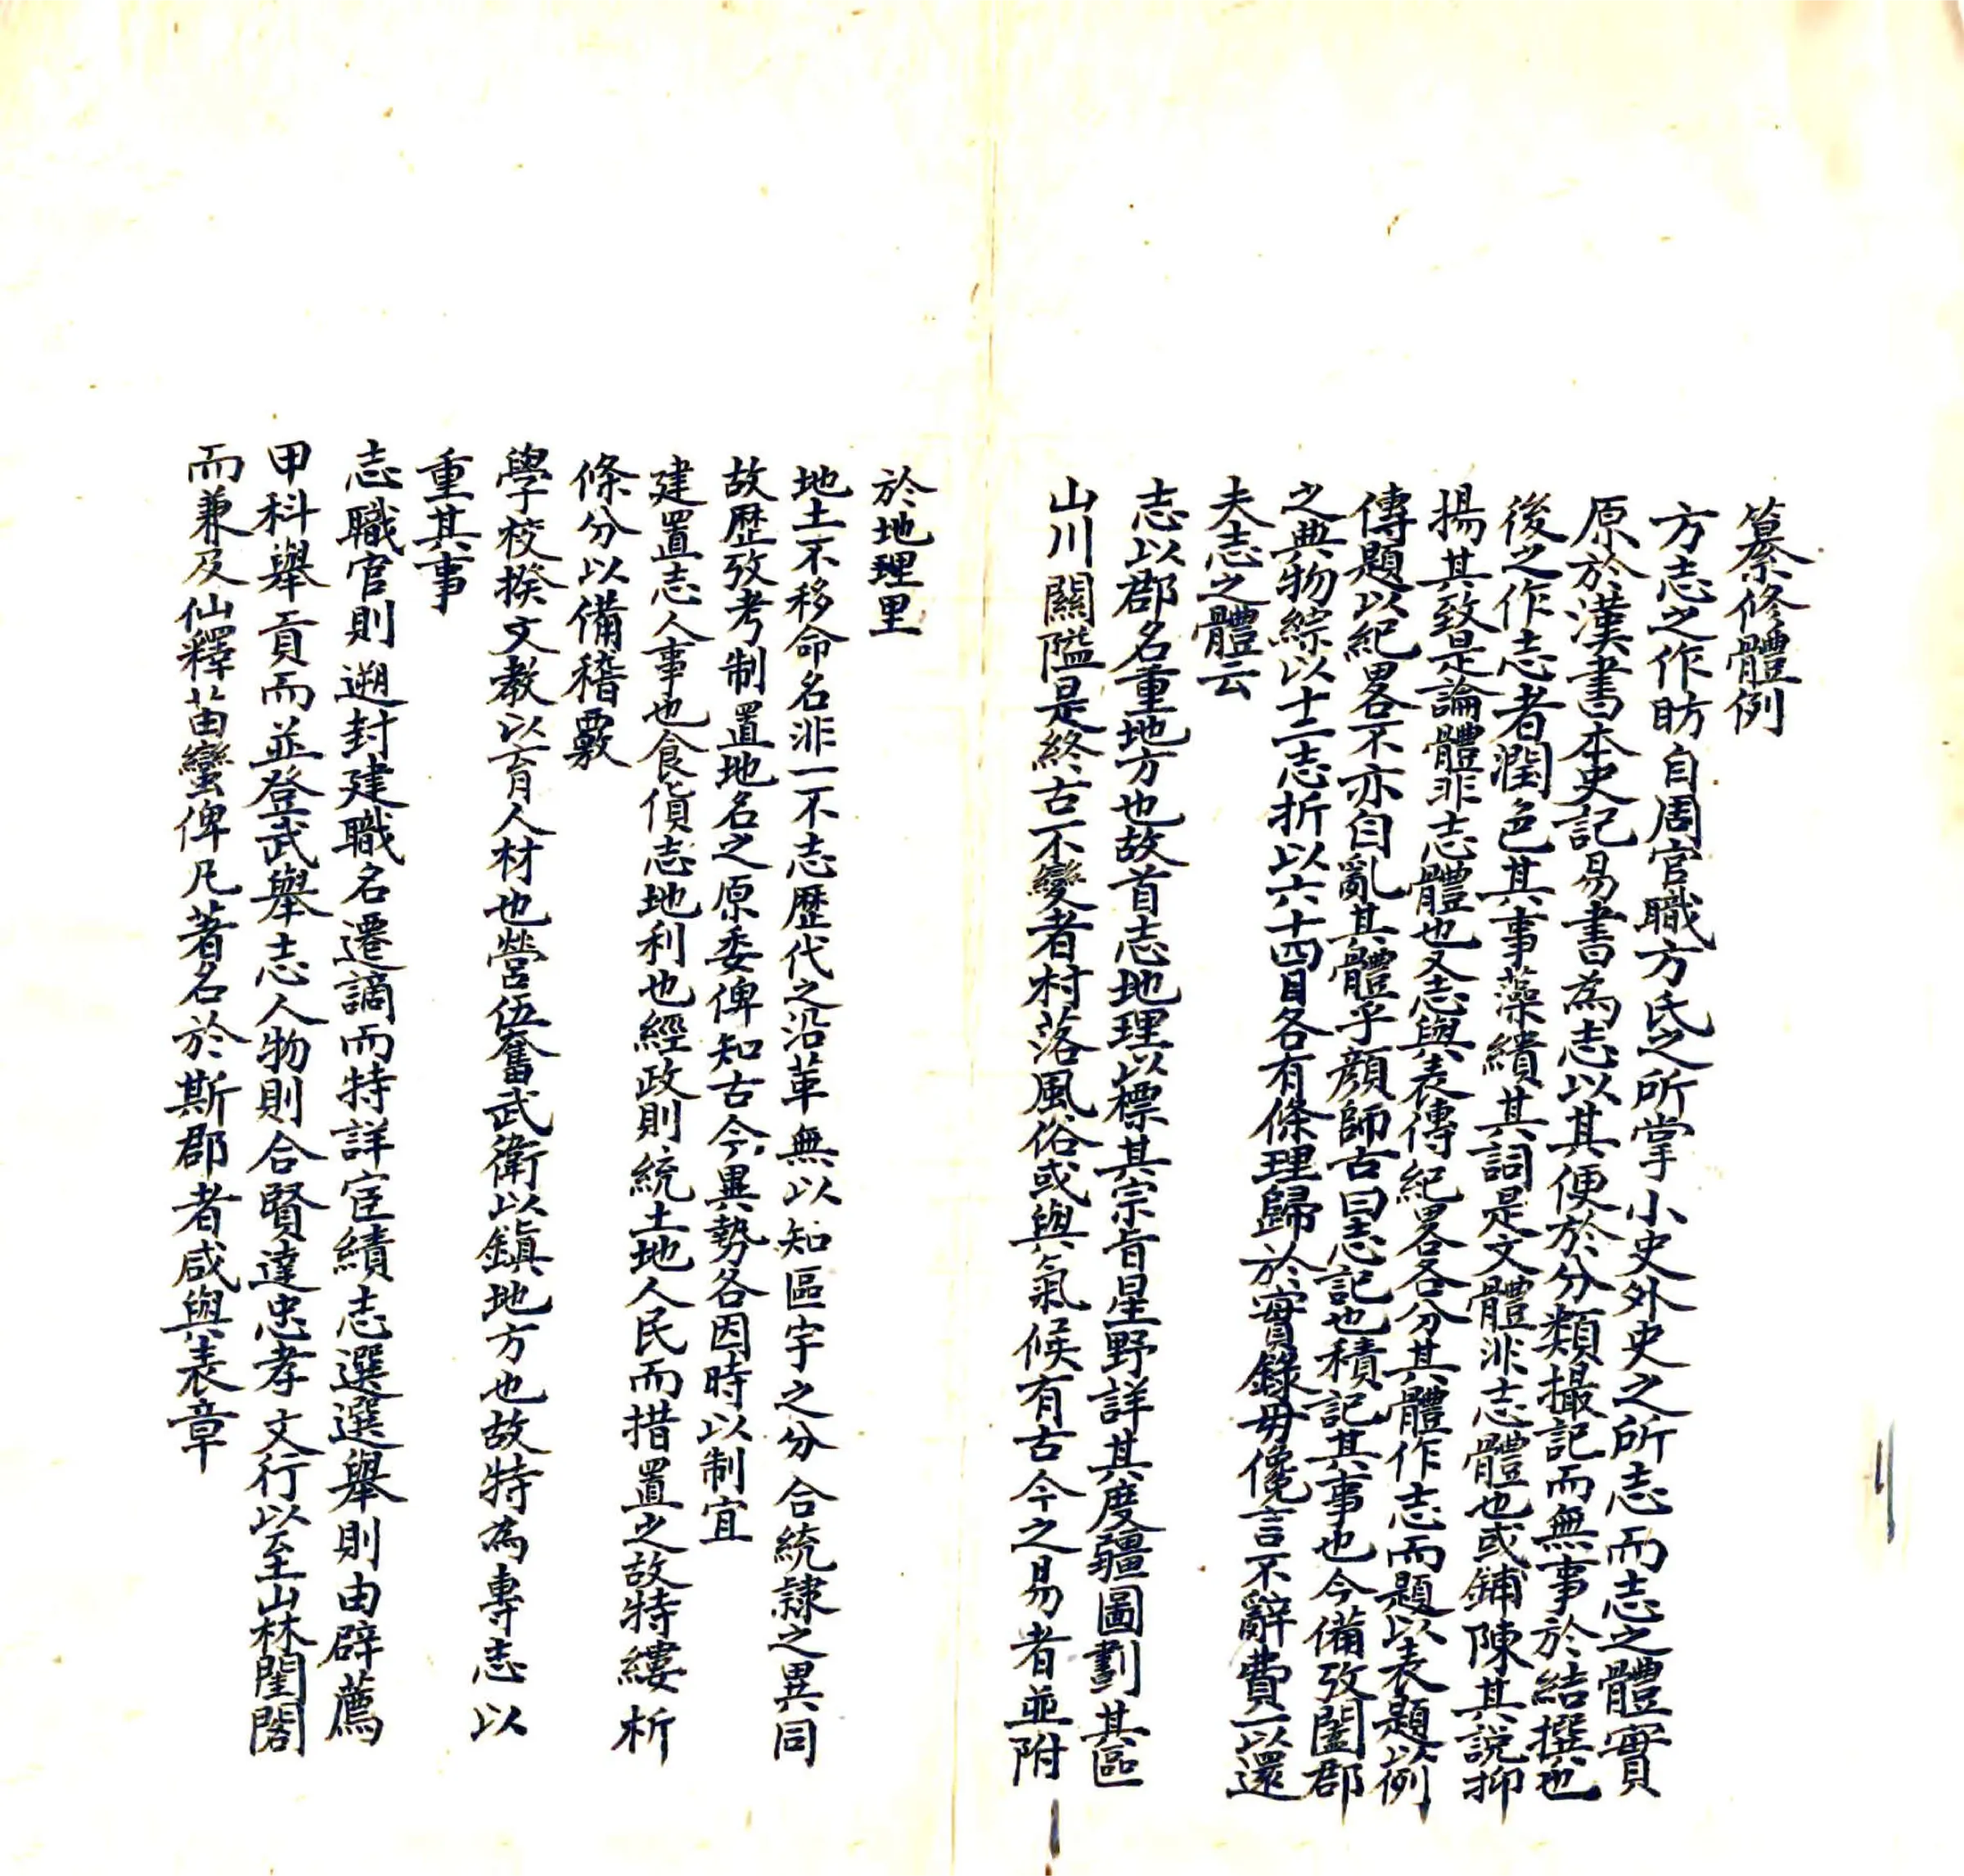 纂修體例
方志之作昉自周官職方氏之所掌小史外史之所志而志之體實
原於漢書本史記易書為志以其便於分類撮記而無事於結撰也
後之作志者潤色其事藻繢其詞是文體非志體也或鋪陳其說抑
揚其致是論體非志體也又志與表傳紀畧各分其體作志而題以表題以例
傳題以紀畧不亦自亂其體乎顏師古曰志記也積記其事也今備攷闔郡
之典物綜以十二志折以六十四目各有條理歸於實錄毋儳言不辭費一以還
夫志之體云
志以郡名重地方也故首志地理以標其宗旨星野詳其度疆圖劃其區
山川關隘是終古不變者村落風俗或與氣候有古今之易者並附
於地理里
地土不移命名非一不志歷代之沿革無以知區宇之分合統隸之異同
故歷攷考制置地名之原委俾知古今異勢各因時以制宜
建置志人事也食貨志地利也經政則統土地人民而措置之故特縷析
條分以備稽覈
學校揆文教以育人材也營伍奮武衛以鎮地方也故特為專志以
重其事
志職官則遡封建職名遷謫而特詳宦績志選選舉則由辟薦
甲科舉貢而並登武舉志人物則合賢達忠孝文行以至山林閨閣
而兼及仙釋苗蠻俾凡著名於斯郡者咸與表章